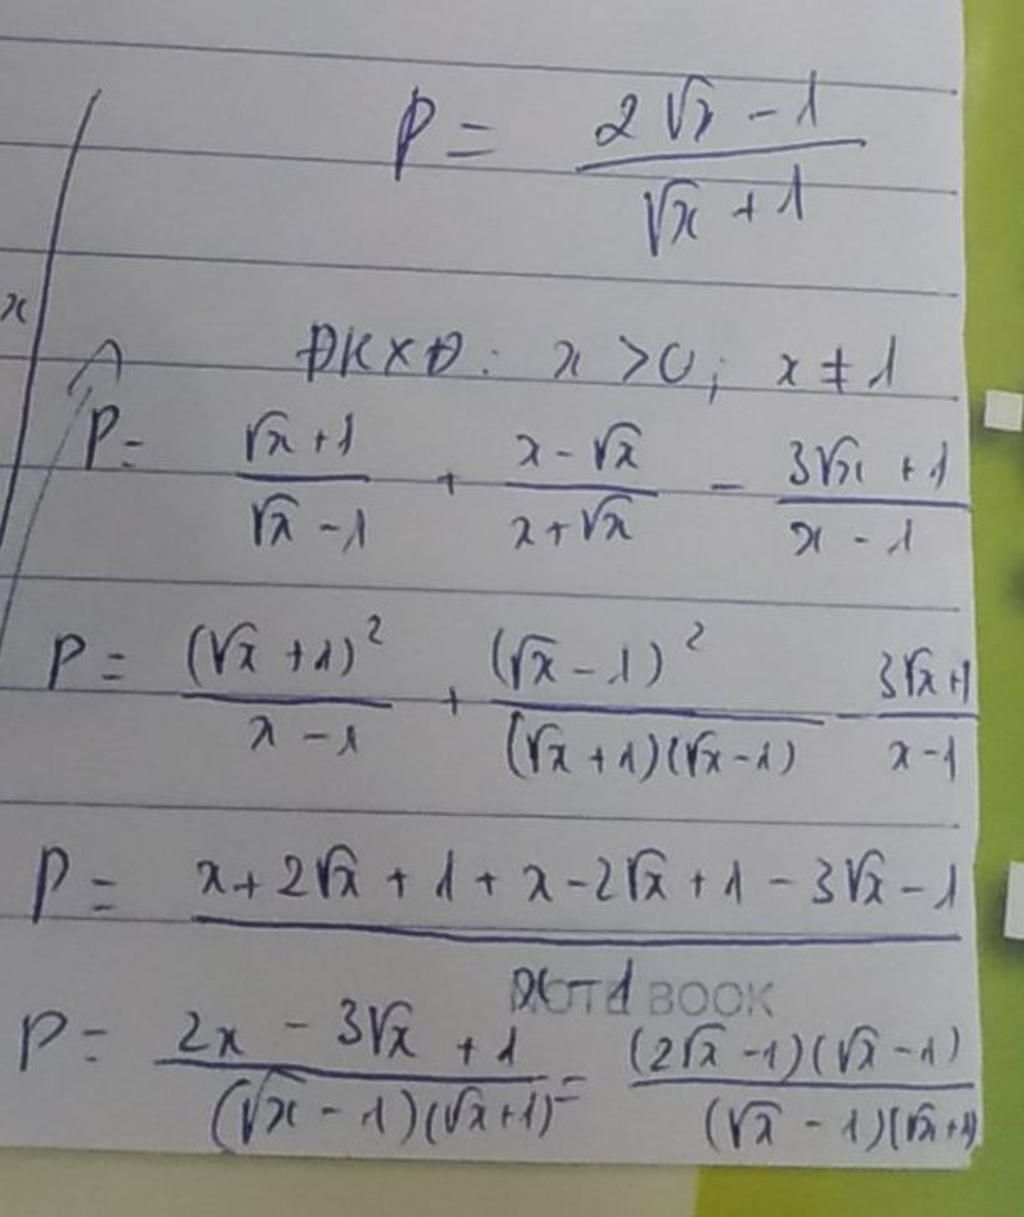 P = (2√x - 1)/(√x + 1)
x
ĐKXĐ: x > 0; x ≠ 1
P = (√x + 1)/(√x - 1) + (x - √x)/(x + √x) - (3√x + 1)/(x - 1)
P = (√x + 1)²/(x - 1) + (√x - 1)²/((√x + 1)(√x - 1)) - (3√x + 1)/(x - 1)
P = (x + 2√x + 1 + x - 2√x + 1 - 3√x - 1)/(x - 1)
NOTE BOOK
P = (2x - 3√x + 1)/((√x - 1)(√x + 1)) = ((2√x - 1)(√x - 1))/((√x - 1)(√x + 1))